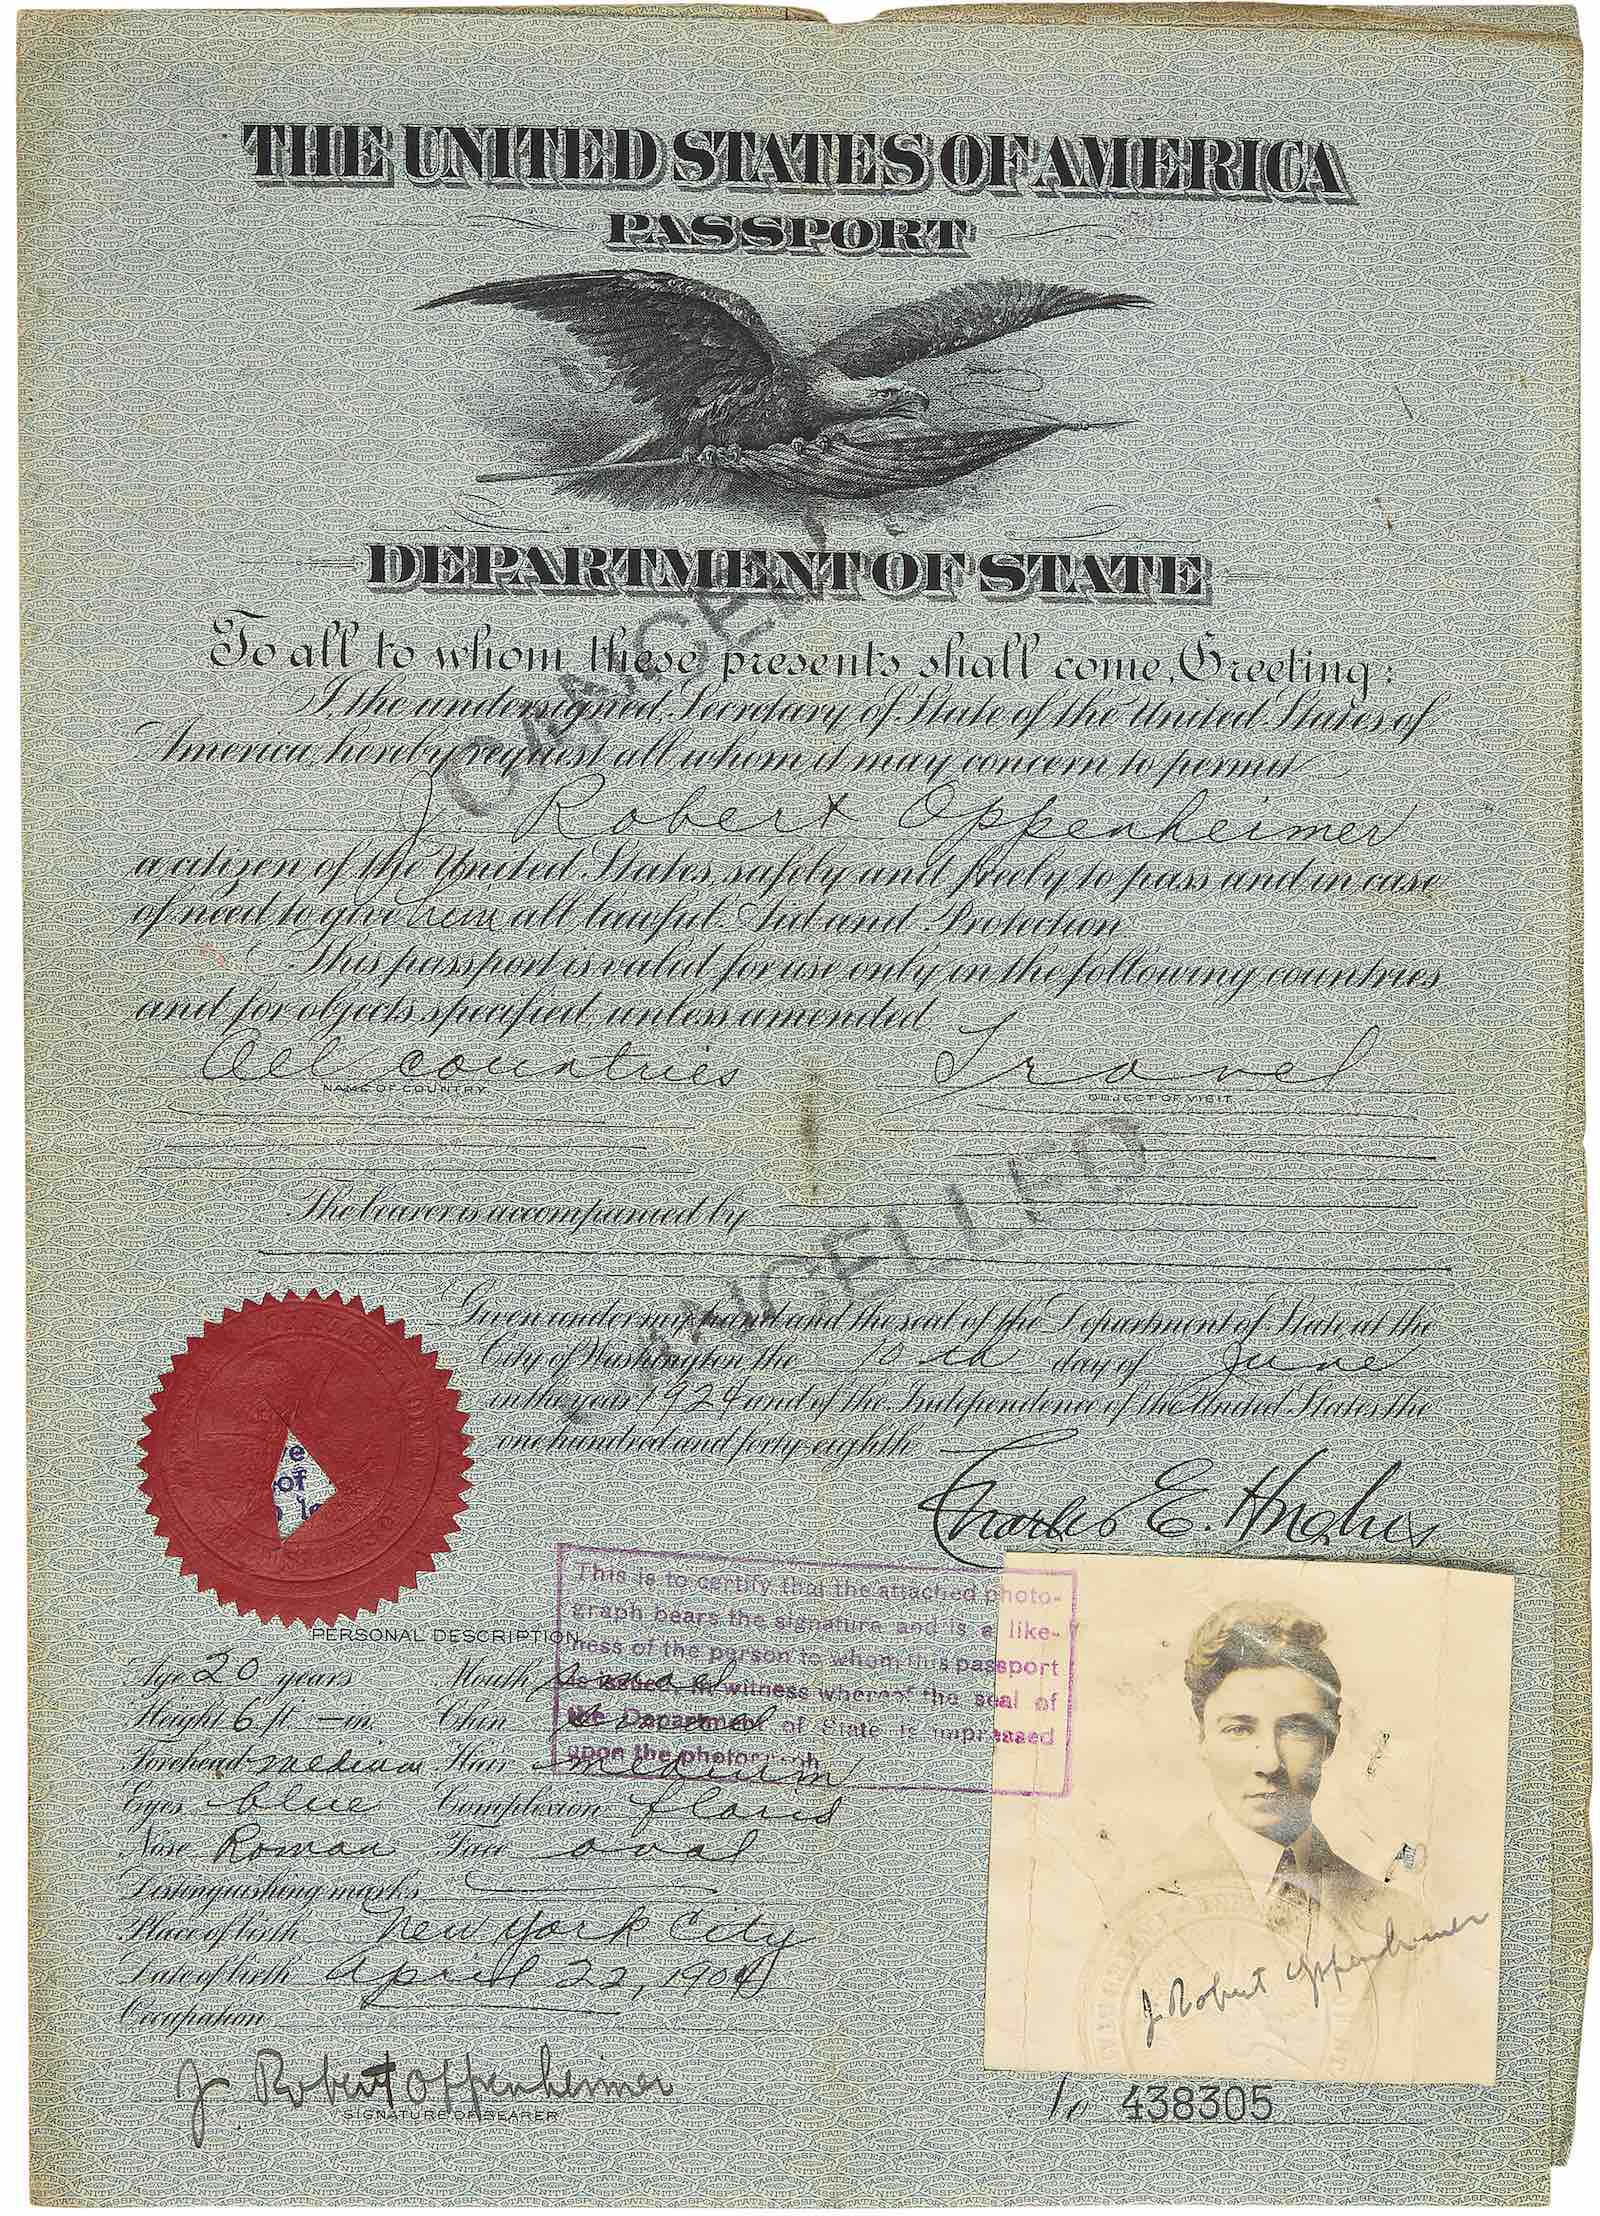 THE UNITED STATES OF AMERICA
PASSPORT
DEPARTMENT OF STATE
To all to whom these presents shall come, Greeting:
I, the undersigned, Secretary of State of the United States of
America, hereby request all whom it may concern to permit
J. Robert Oppenheimer
a citizen of the United States, safely and freely to pass and in case
of need to give him all lawful Aid and Protection
This passport is valid for use only in the following countries
and for objects specified, unless amended
All countries Travel
NAME OF COUNTRY OBJECT OF VISIT
The bearer is accompanied by
CANCELLED
Given under my hand and the seal of the Department of State at the
City of Washington the 10th day of June
in the year 1924 and of the Independence of the United States the
one hundred and forty-eighth
Charles E. Hughes
This is to certify that the attached photo-
graph bears the signature and is a like-
ness of the person to whom this passport
is issued, in witness whereof the seal of
the Department of State is impressed
upon the photograph
PERSONAL DESCRIPTION
Age 20 years Mouth small
Height 6 ft. — in. Chin
Forehead medium Hair medium
Eyes blue Complexion florid
Nose Roman Face oval
Distinguishing marks
Place of birth New York City
Date of birth April 22, 1904
Occupation
J Robert Oppenheimer
SIGNATURE OF BEARER
J Robert Oppenheimer
No 438305